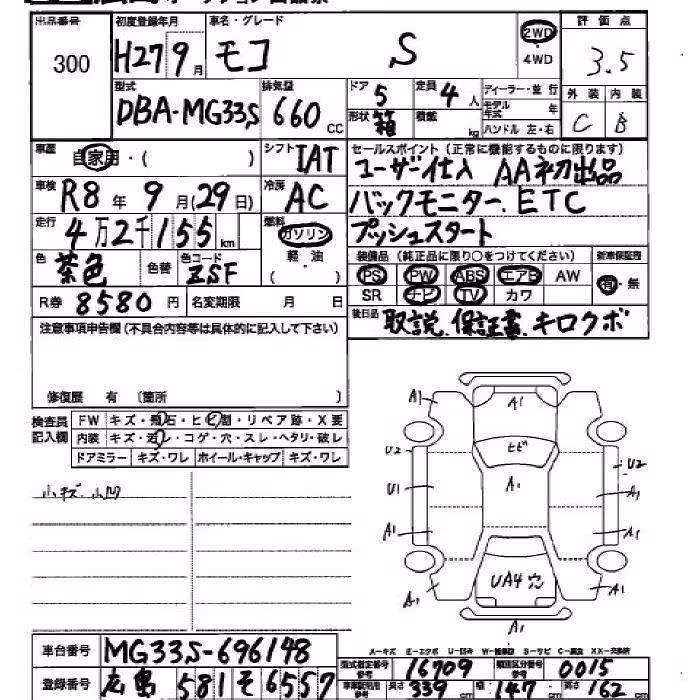 出品番号 初度登録年月 車名・グレード 評価点
300 H27 9月 モコ S 2WD 4WD 3.5
型式 排気量 ドア 定員 ディーラー・並行 外装 内装
DBA-MG33S 660 CC 5 4人 モデル年式 年 C B
形状 箱 積載 kg ハンドル 左・右
車歴 自家用・( ) シフト IAT セールスポイント(正常に機能するものに限ります)
ユーザー仕入 AA初出品
車検 R8年9月(29日) 冷房 AC バックモニター.ETC
走行 4万2千155km 燃料 ガソリン プッシュスタート
軽・油
色 茶色 色替 色コード ZSF ( ) 装備品(純正品に限り○をつけてください) 新車保証書
PS PW ABS エアB AW 有・無
R券 8580円 名変期限 月 日 SR ナビ TV カワ
注意事項申告欄(不具合内容等は具体的に記入して下さい) 後日品 取説.保証書.キロクボ
修復歴 有 〔箇所 〕
検査員記入欄 FW キズ・飛石・ヒビ割・リペア跡・X要
内装 キズ・汚レ・コゲ・穴・スレ・ヘタリ・破レ
ドアミラー キズ・ワレ ホイール・キャップ キズ・ワレ
小キズ.小凹
A1 A1
U2 ヒビ U2
U1 A1 A1
A1 A1
UA4 穴
A1 A1
A1
A-キズ E-エクボ U-凹み W-補修跡 S-サビ C-腐食 XX-交換済
車台番号 MG33S-696148 型式指定番号 参考 16709 類別区分番号 参考 0015
登録番号 広島 581 そ 6557 長さ 339 cm 幅 147 cm 高さ 162 cm